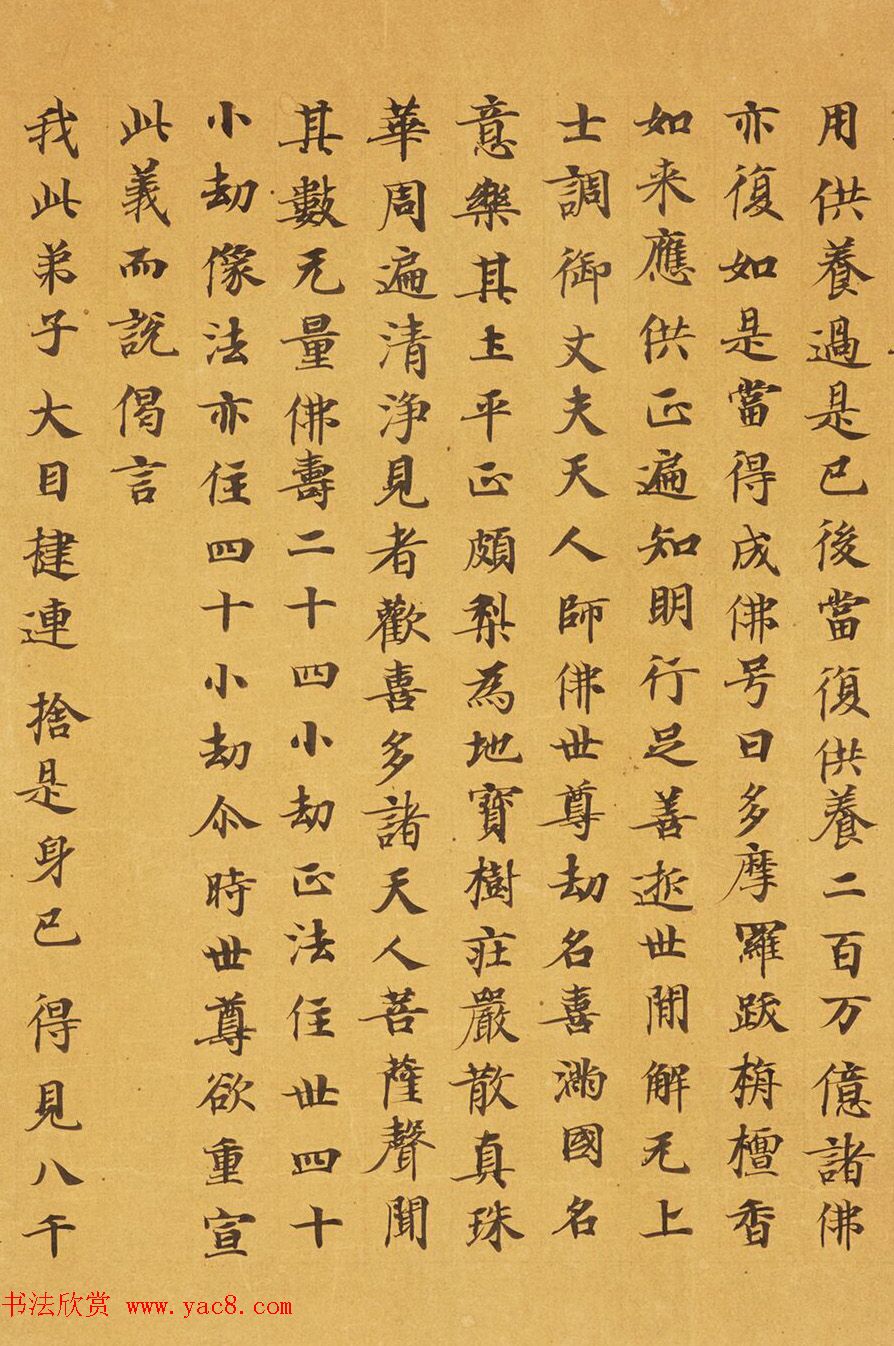 用供養過是已後當復供養二百万億諸佛
亦復如是當得成佛号曰多摩羅跋栴檀香
如来應供正遍知明行足善逝世間解无上
士調御丈夫天人師佛世尊劫名喜満國名
意樂其土平正頗梨為地寶樹莊嚴散真珠
華周遍清淨見者歡喜多諸天人菩薩聲聞
其數无量佛壽二十四小劫正法住世四十
小劫像法亦住四十小劫尒時世尊欲重宣
此義而説偈言
我此弟子大目揵連 捨是身已 得見八千
书法欣赏 www.yac8.com